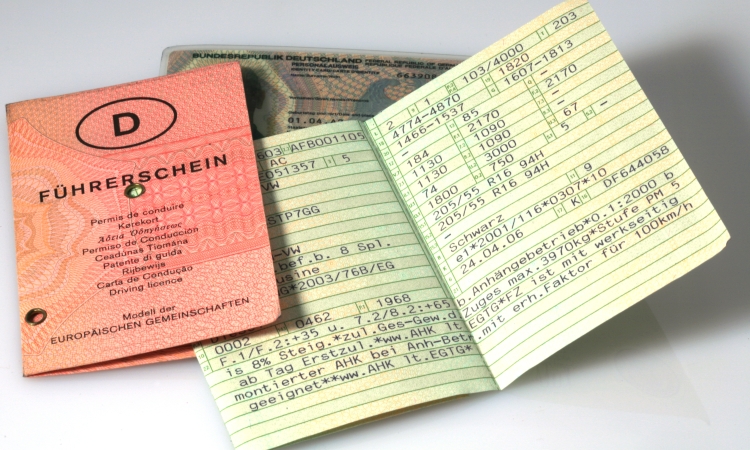 D
FÜHRERSCHEIN
Permis de conduire
Kørekort
Άδεια Οδηγήσεως
Permiso de Conducción
Ceadúnas Tiomána
Patente di guida
Rijbewijs
Carta de Condução
Driving licence
Modell der
EUROPÄISCHEN GEMEINSCHAFTEN
BUNDESREPUBLIK DEUTSCHLAND
PERSONALAUSWEIS
603 AFB001105
AC
051357 5
VW
STP7GG
-VW
bef.b. 8 Spl.
usine
G*2003/768/EG
1968
0002 0462
F.1/F.2:+35 u. 7.2/8.2:+65
is 8% Steig.*zul.Ges-Gew.d
ab Tag Erstzul.*ww.AHK lt.
montierter AHK bei Anh-Betr
geeignet**ww.AHK lt.EGTG*
2 1 103/4000 203
4774-4870 1820 -
1466-1537 85 1607-1813
- 2170 -
184 1090 2170
1130 1090 -
1130 3000 67 -
74 750 5 -
1800
205/55 R16 94H
205/55 R16 94H
-
Schwarz 9
e1*2001/116*0307*10
24.04.06 K DF644058
b.Anhängebetrieb*0.1:2000 b
zuges max.3970kg*Stufe PM 5
EGTG*FZ ist mit werkseitig
.mit erh.Faktor für 100km/h